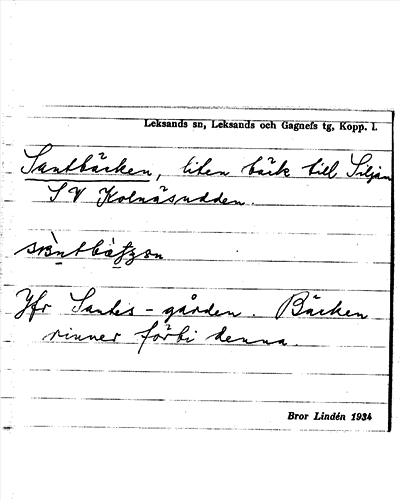 Leksands sn, Leksands och Gagnefs tg, Kopp. l.
Santbäcken, liten bäck till Siljan
S V Kolnäsudden.
Jfr Santes-gården. Bäcken
rinner förbi denna.
Bror Lindén 1934